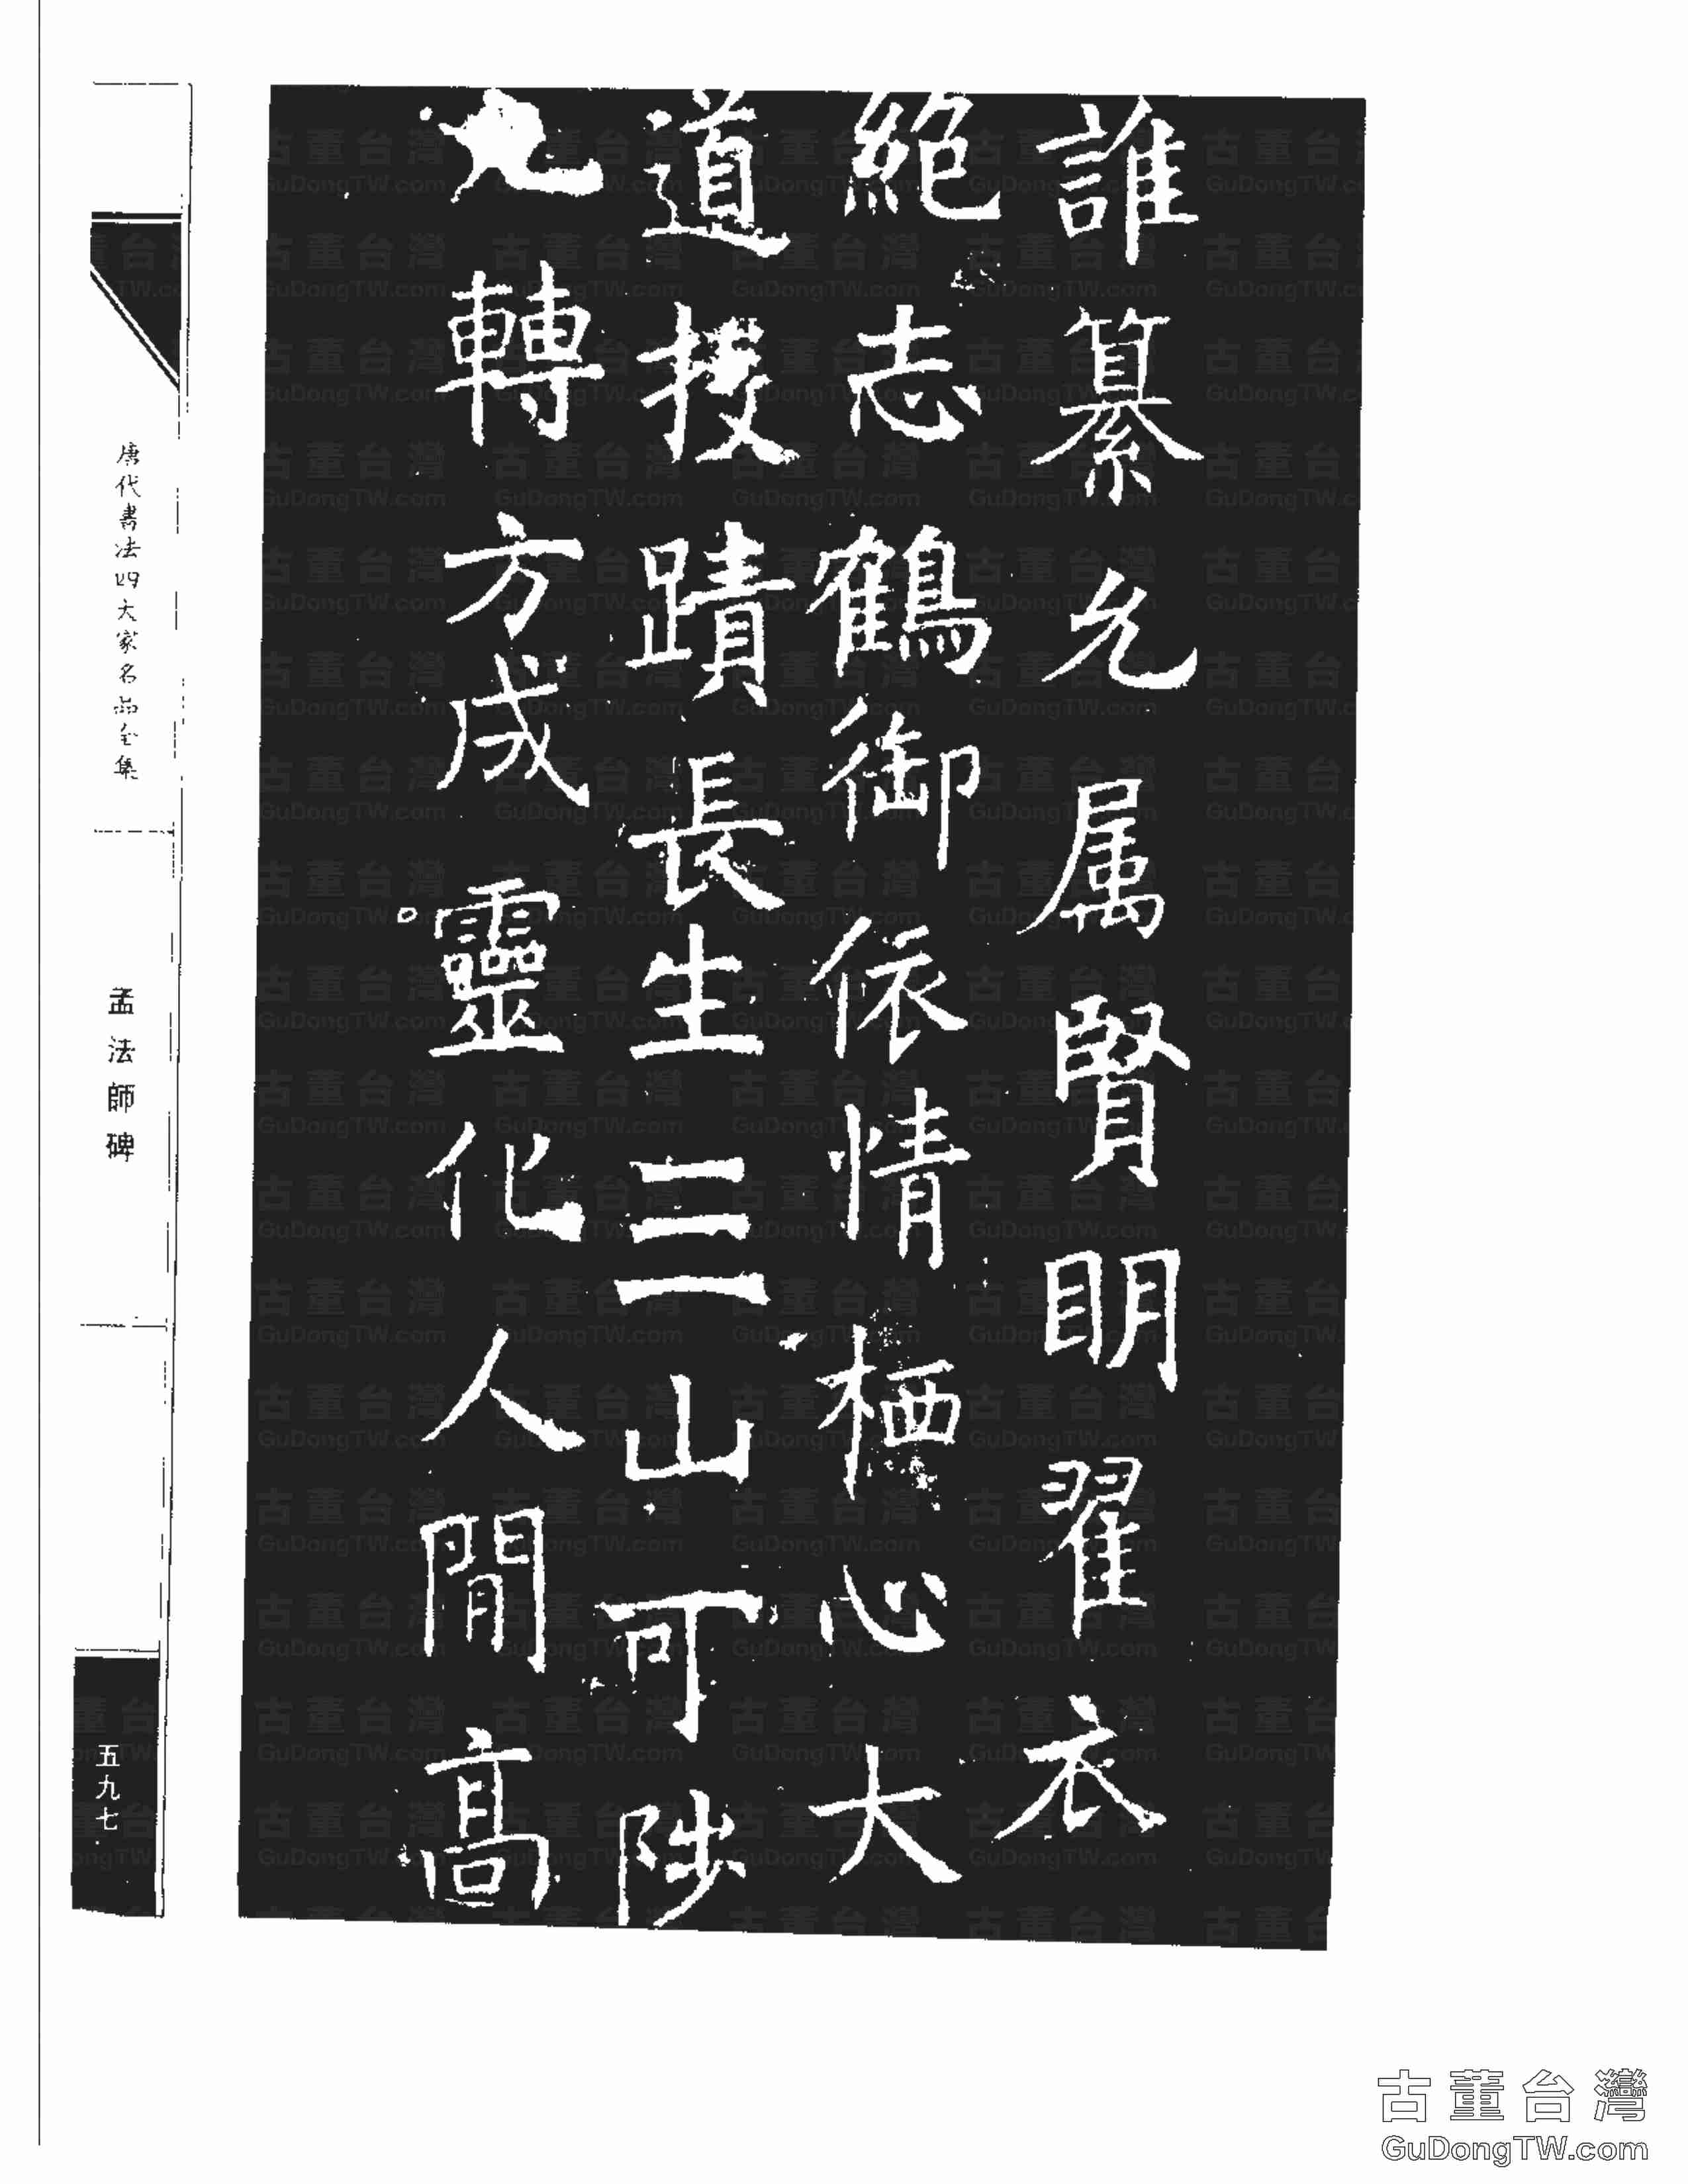 誰纂允属賢明翟衣
絕志鶴御依情栖心大
道投蹟長生三山可陟
九轉方成靈化人間高
唐代書法四大家名品全集
孟法師碑
五九七
古董台灣
GuDongTW.com